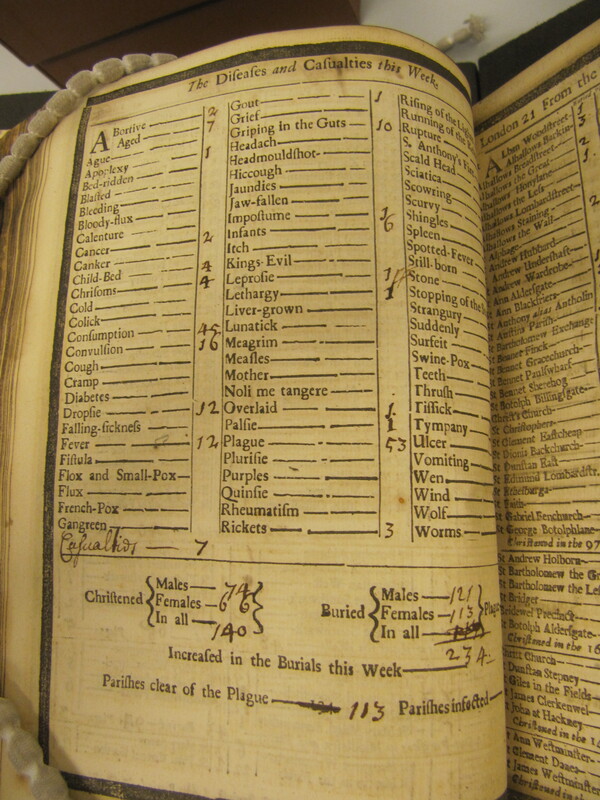 The Diseases and Casualties this Week
Abortive 2
Aged 7
Ague
Apoplexy 1
Bed-ridden
Blasted
Bleeding
Bloody-flux
Calenture
Cancer 2
Canker
Child-Bed 4
Chrisoms 4
Cold
Colick
Consumption 45
Convulsion 16
Cough
Cramp
Diabetes
Dropsie 12
Falling-sickness
Fever 12
Fistula
Flox and Small-Pox
Flux
French-Pox
Gangreen
Casualtids 7
Gout 1
Grief
Griping in the Guts 10
Headach
Headmouldshot
Hiccough
Jaundies
Jaw-fallen
Impostume 1
Infants 6
Itch
Kings-Evil
Leprosie
Lethargy 1
Liver-grown
Lunatick
Meagrim
Measles
Mother
Noli me tangere
Overlaid 1
Palsie 1
Plague 53
Plurisie
Purples
Quinsie
Rheumatism
Rickets 3
Rising of the
Running of the
Rupture
S. Anthony's
Scald Head
Sciatica
Scowring
Scurvy
Shingles
Spleen
Spotted-Fever
Still-born
Stone
Stopping of the
Strangury
Suddenly
Surfeit
Swine-Pox
Teeth
Thrush
Tissick
Tympany
Ulcer
Vomiting
Wen
Wind
Wolf
Worms
Christened
Males 74
Females 66
In all 140
Buried
Males 121
Females 113
In all
234
Plague
Increased in the Burials this Week
Parishes clear of the Plague 113 Parishes infected
London 21 From the
Alhallows Breadstreet
Alhallows the Great
Alhallows Honylane
Alhallows the Less
Alhallows Lombardstreet
Alhallows Staining
Alhallows the Wall
Andrew Hubbard
Andrew Undershaft
Andrew Wardrobe
Ann Aldersgate
Ann Blackfriers
St Anthony alias Antholin
St Austins Parish
St Bartholomew Exchange
St Bennet Finck
St Bennet Gracechurch
St Bennet Paulswharf
St Bennet Sherehog
St Botolph Billingsgate
Christ's Church
St Christophers
St Clement Eastcheap
St Dionis Backchurch
St Dunstan East
St Edmund Lombardstr.
St Gabriel Fenchurch
St George Botolphlane
Christened in the 97
St Andrew Holborn
St Bartholomew the Gr
St Bartholomew the Les
St Bridget
Bridewel Precinct
St Botolph Aldersgate
Christened in the 16
Christ Church
St Dunstan Stepney
St Giles in the Fields
St James Clerkenwel
St John at Hackney
Christened in the
St Ann Westminster
St Clement Danes
St James Westminster
Christened in the